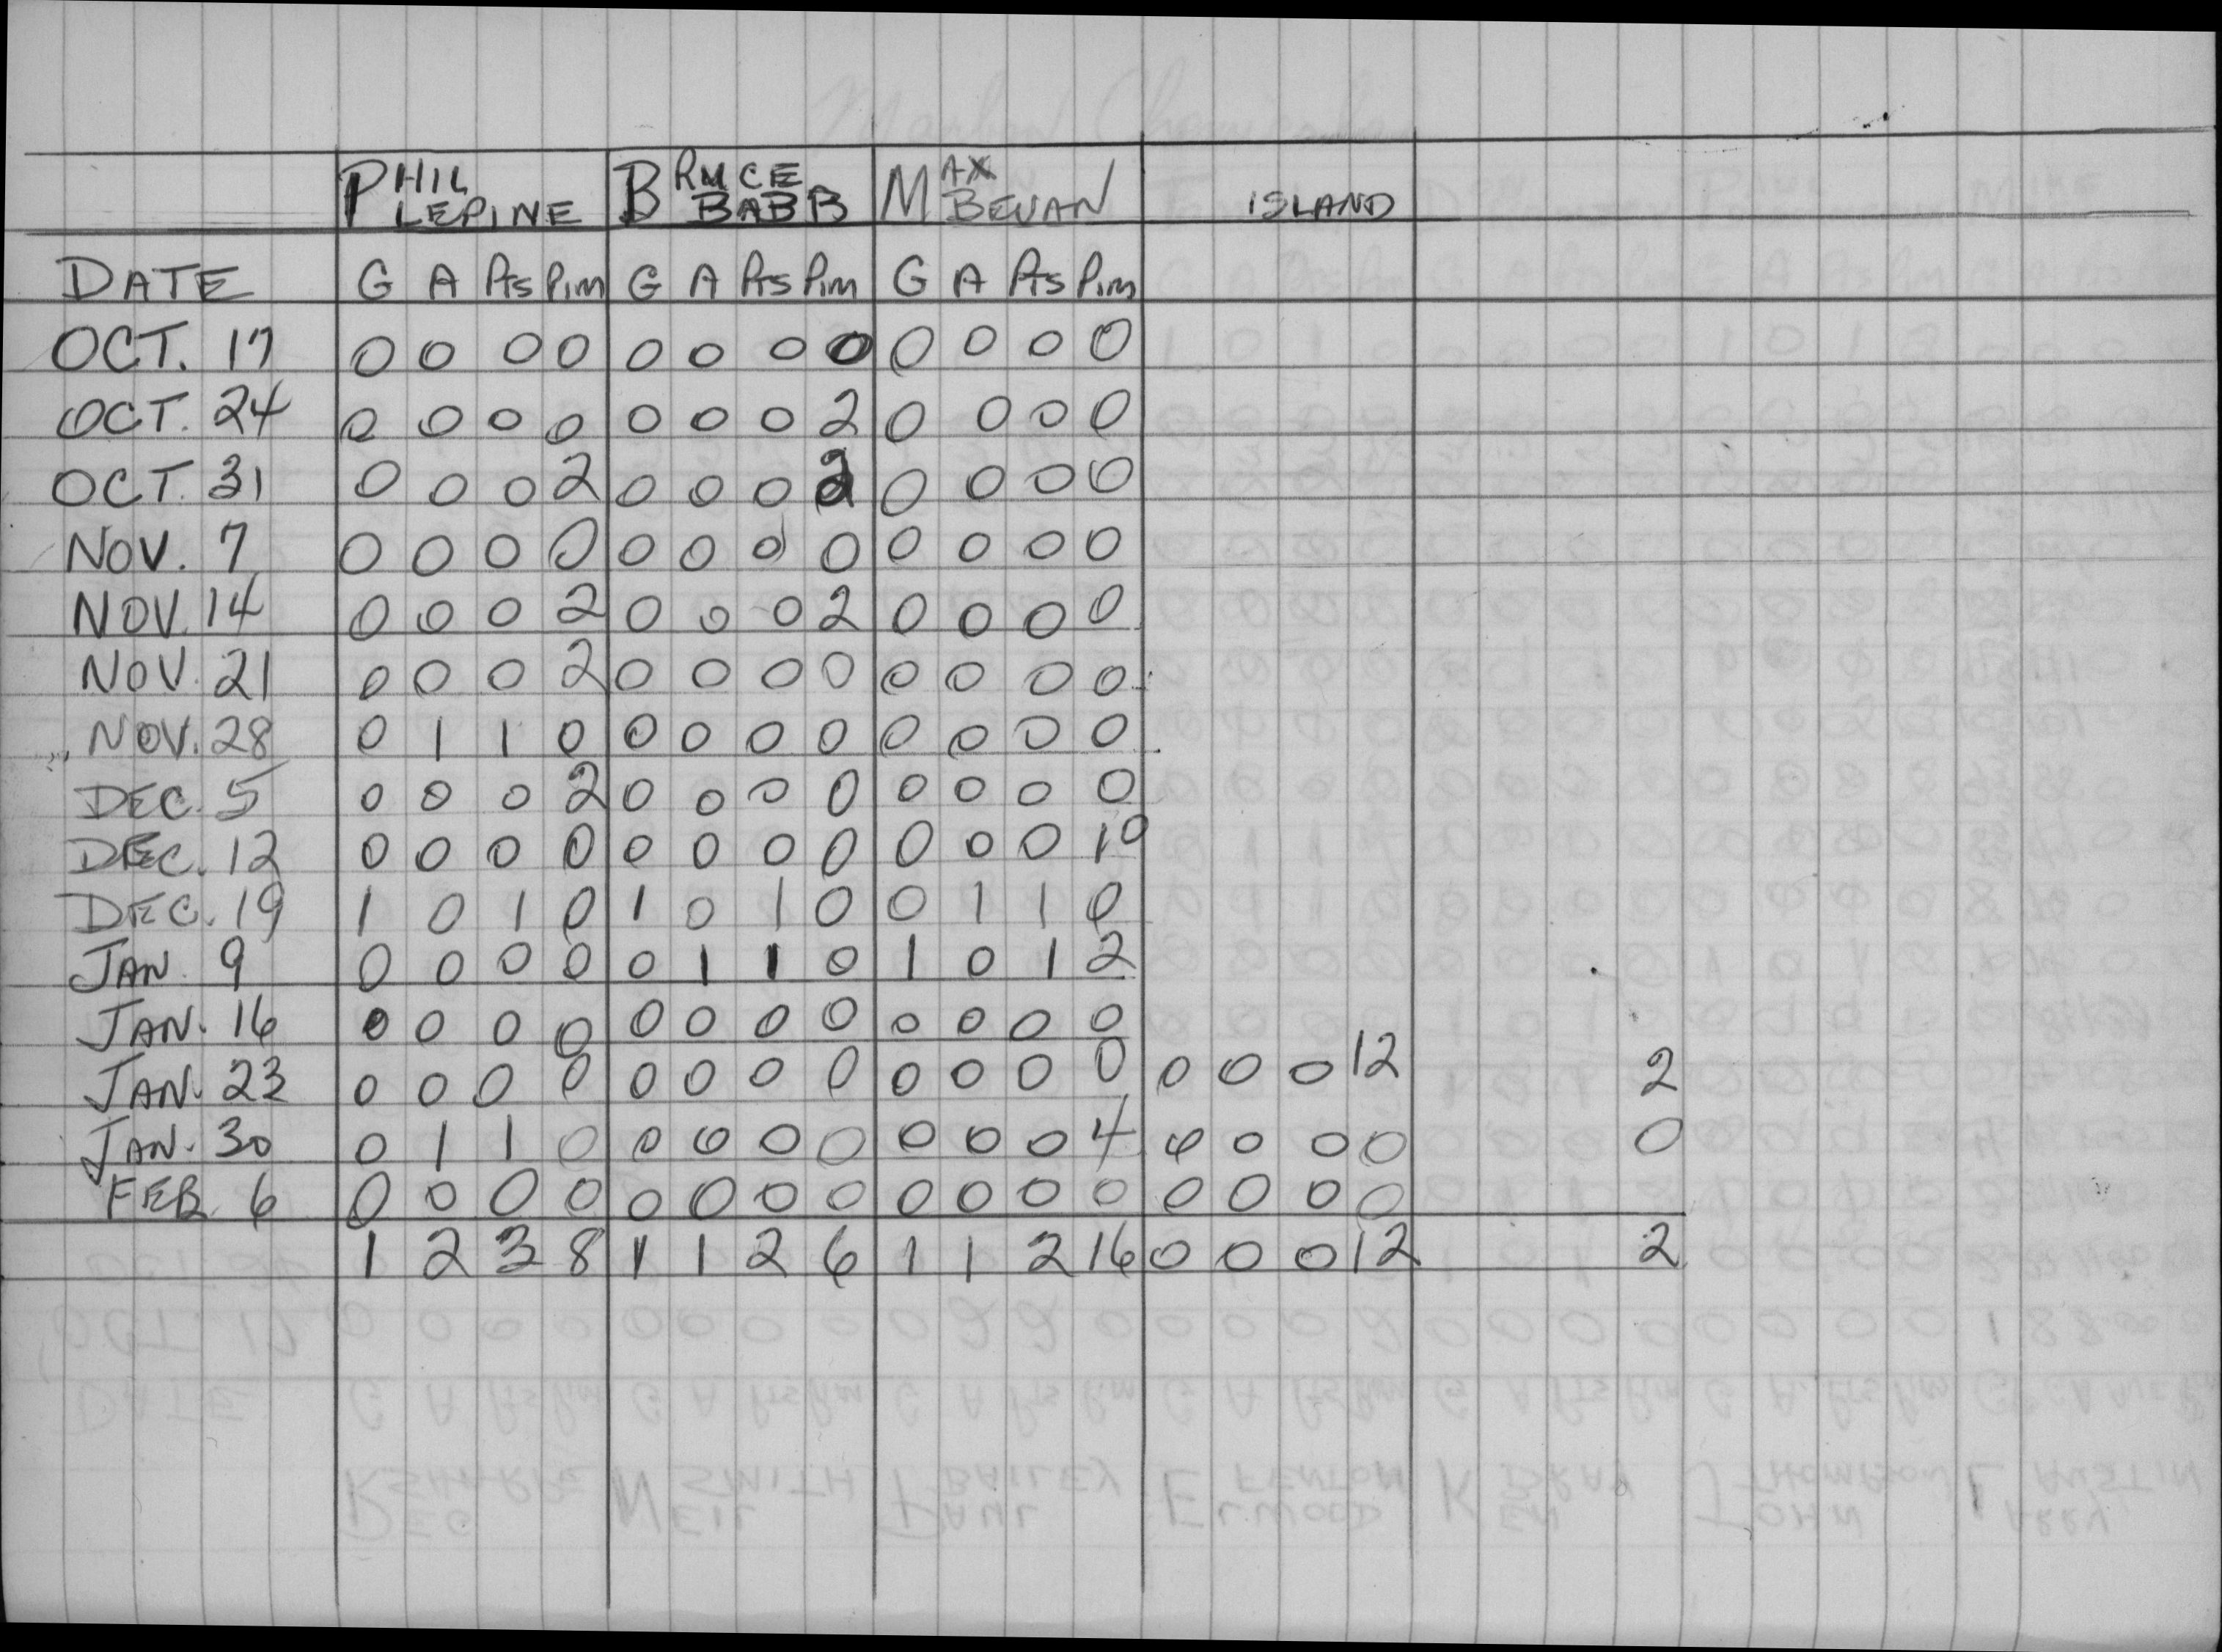 PHIL LEPINE BRUCE BABB MAX BEVAN ISLAND
DATE G A Pts Pim G A Pts Pim G A Pts Pim
OCT. 17 0 0 0 0 0 0 0 0 0 0 0 0
OCT. 24 0 0 0 0 0 0 0 2 0 0 0 0
OCT. 31 0 0 0 2 0 0 0 2 0 0 0 0
NOV. 7 0 0 0 0 0 0 0 0 0 0 0 0
NOV. 14 0 0 0 2 0 0 0 2 0 0 0 0
NOV. 21 0 0 0 2 0 0 0 0 0 0 0 0
NOV. 28 0 1 1 0 0 0 0 0 0 0 0 0
DEC. 5 0 0 0 2 0 0 0 0 0 0 0 0
DEC. 12 0 0 0 0 0 0 0 0 0 0 0 10
DEC. 19 1 0 1 0 1 0 1 0 0 1 1 0
JAN. 9 0 0 0 0 0 1 1 0 1 0 1 2
JAN. 16 0 0 0 0 0 0 0 0 0 0 0 0
JAN. 23 0 0 0 0 0 0 0 0 0 0 0 0 0 0 0 12 2
JAN. 30 0 1 1 0 0 0 0 0 0 0 0 4 0 0 0 0 0
FEB. 6 0 0 0 0 0 0 0 0 0 0 0 0 0 0 0 0
1 2 3 8 1 1 2 6 1 1 2 16 0 0 0 12 2